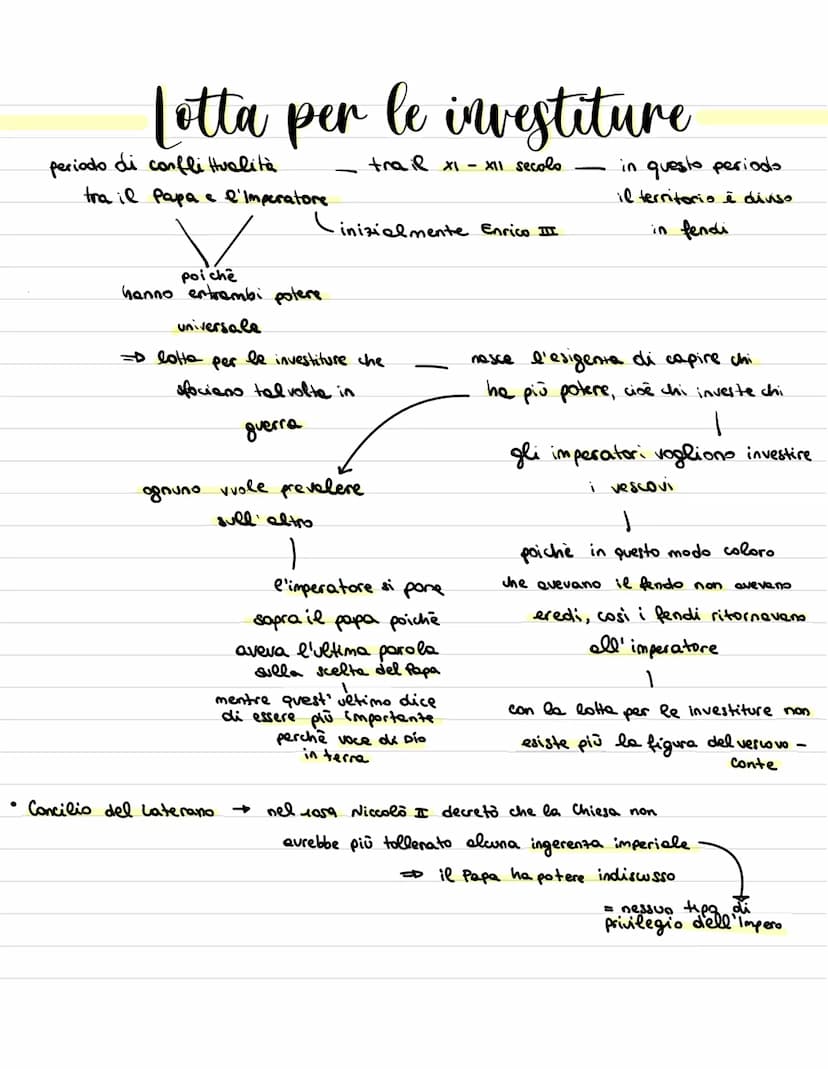 Lotta per le investiture
periodo di conflittualità — tra il XI - XII secolo — in questo periodo
tra il Papa e l'Imperatore
il territorio è diviso
in feudi
inizialmente Enrico III
poichè
hanno entrambi potere
universale
=> lotta per le investiture che
sfociano talvolta in
guerra
— nasce l'esigenza di capire chi
ha più potere, cioè chi investe chi
gli imperatori vogliono investire
i vescovi
poichè in questo modo coloro
che avevano il feudo non avevano
eredi, così i feudi ritornavano
all'imperatore
con la lotta per le investiture non
esiste più la figura del vescovo -
conte
ognuno vuole prevalere
sull'altro
l'imperatore si pone
sopra il papa poichè
aveva l'ultima parola
sulla scelta del Papa
mentre quest'ultimo dice
di essere più importante
perchè voce di Dio
in terra
• Concilio del Laterano → nel 1059 Niccolò II decretò che la Chiesa non
avrebbe più tollerato alcuna ingerenza imperiale
=> il Papa ha potere indiscusso
= nessun tipo di
privilegio dell'Impero